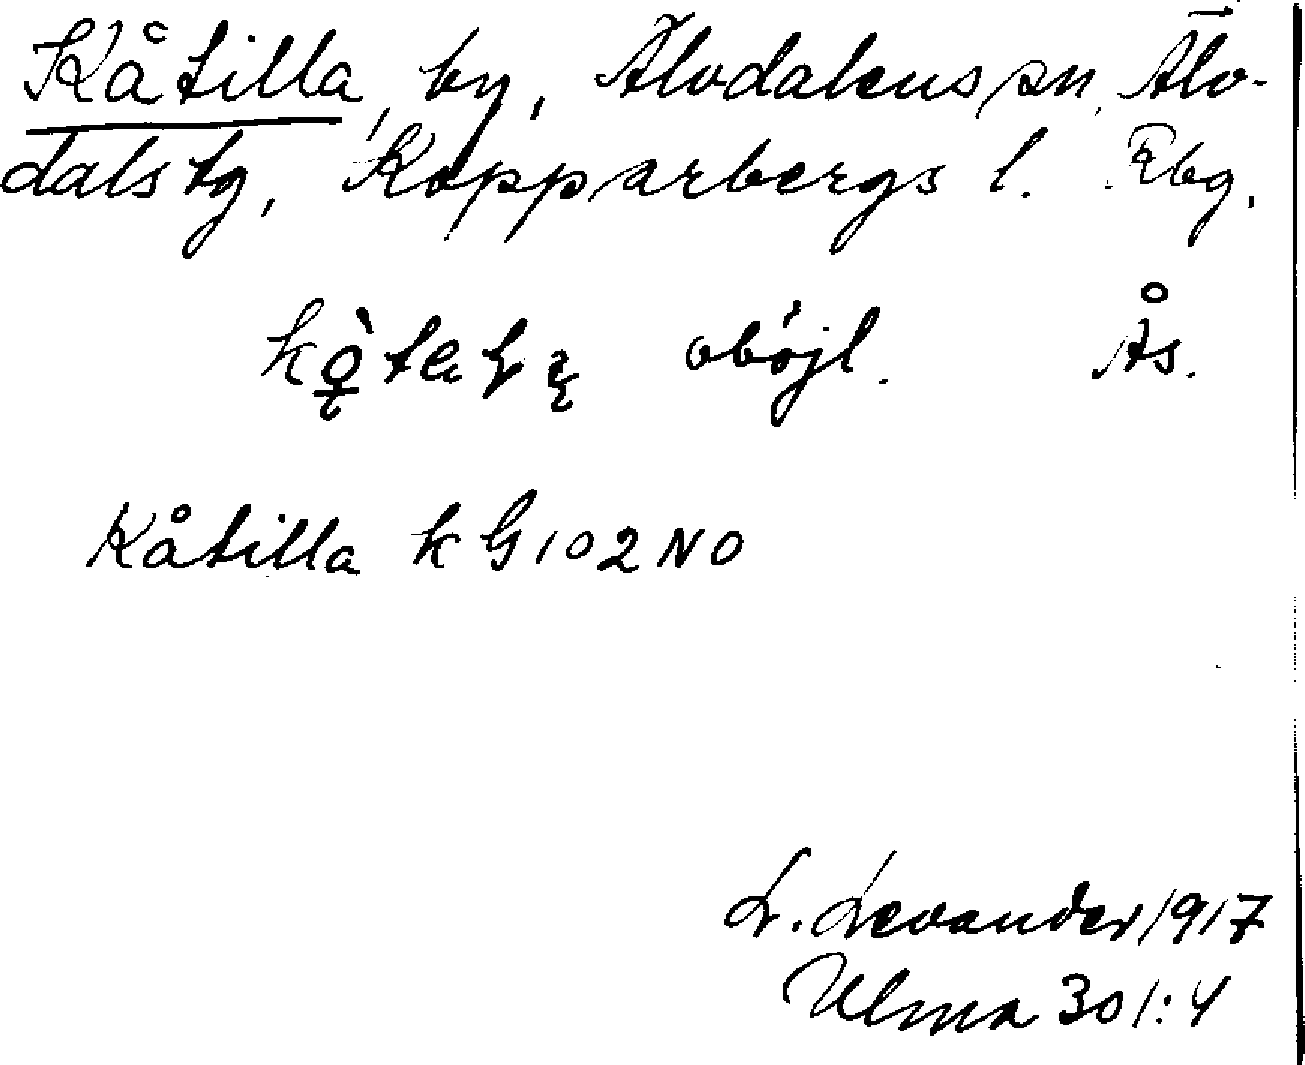 Kåtilla, by, Älvdalens sn, Älv-
dals tg, Kopparbergs l. Rbg.
obøjl. Ås.
Kåtilla k G 102 NO
L. Levander 1917
Ulma 301:4